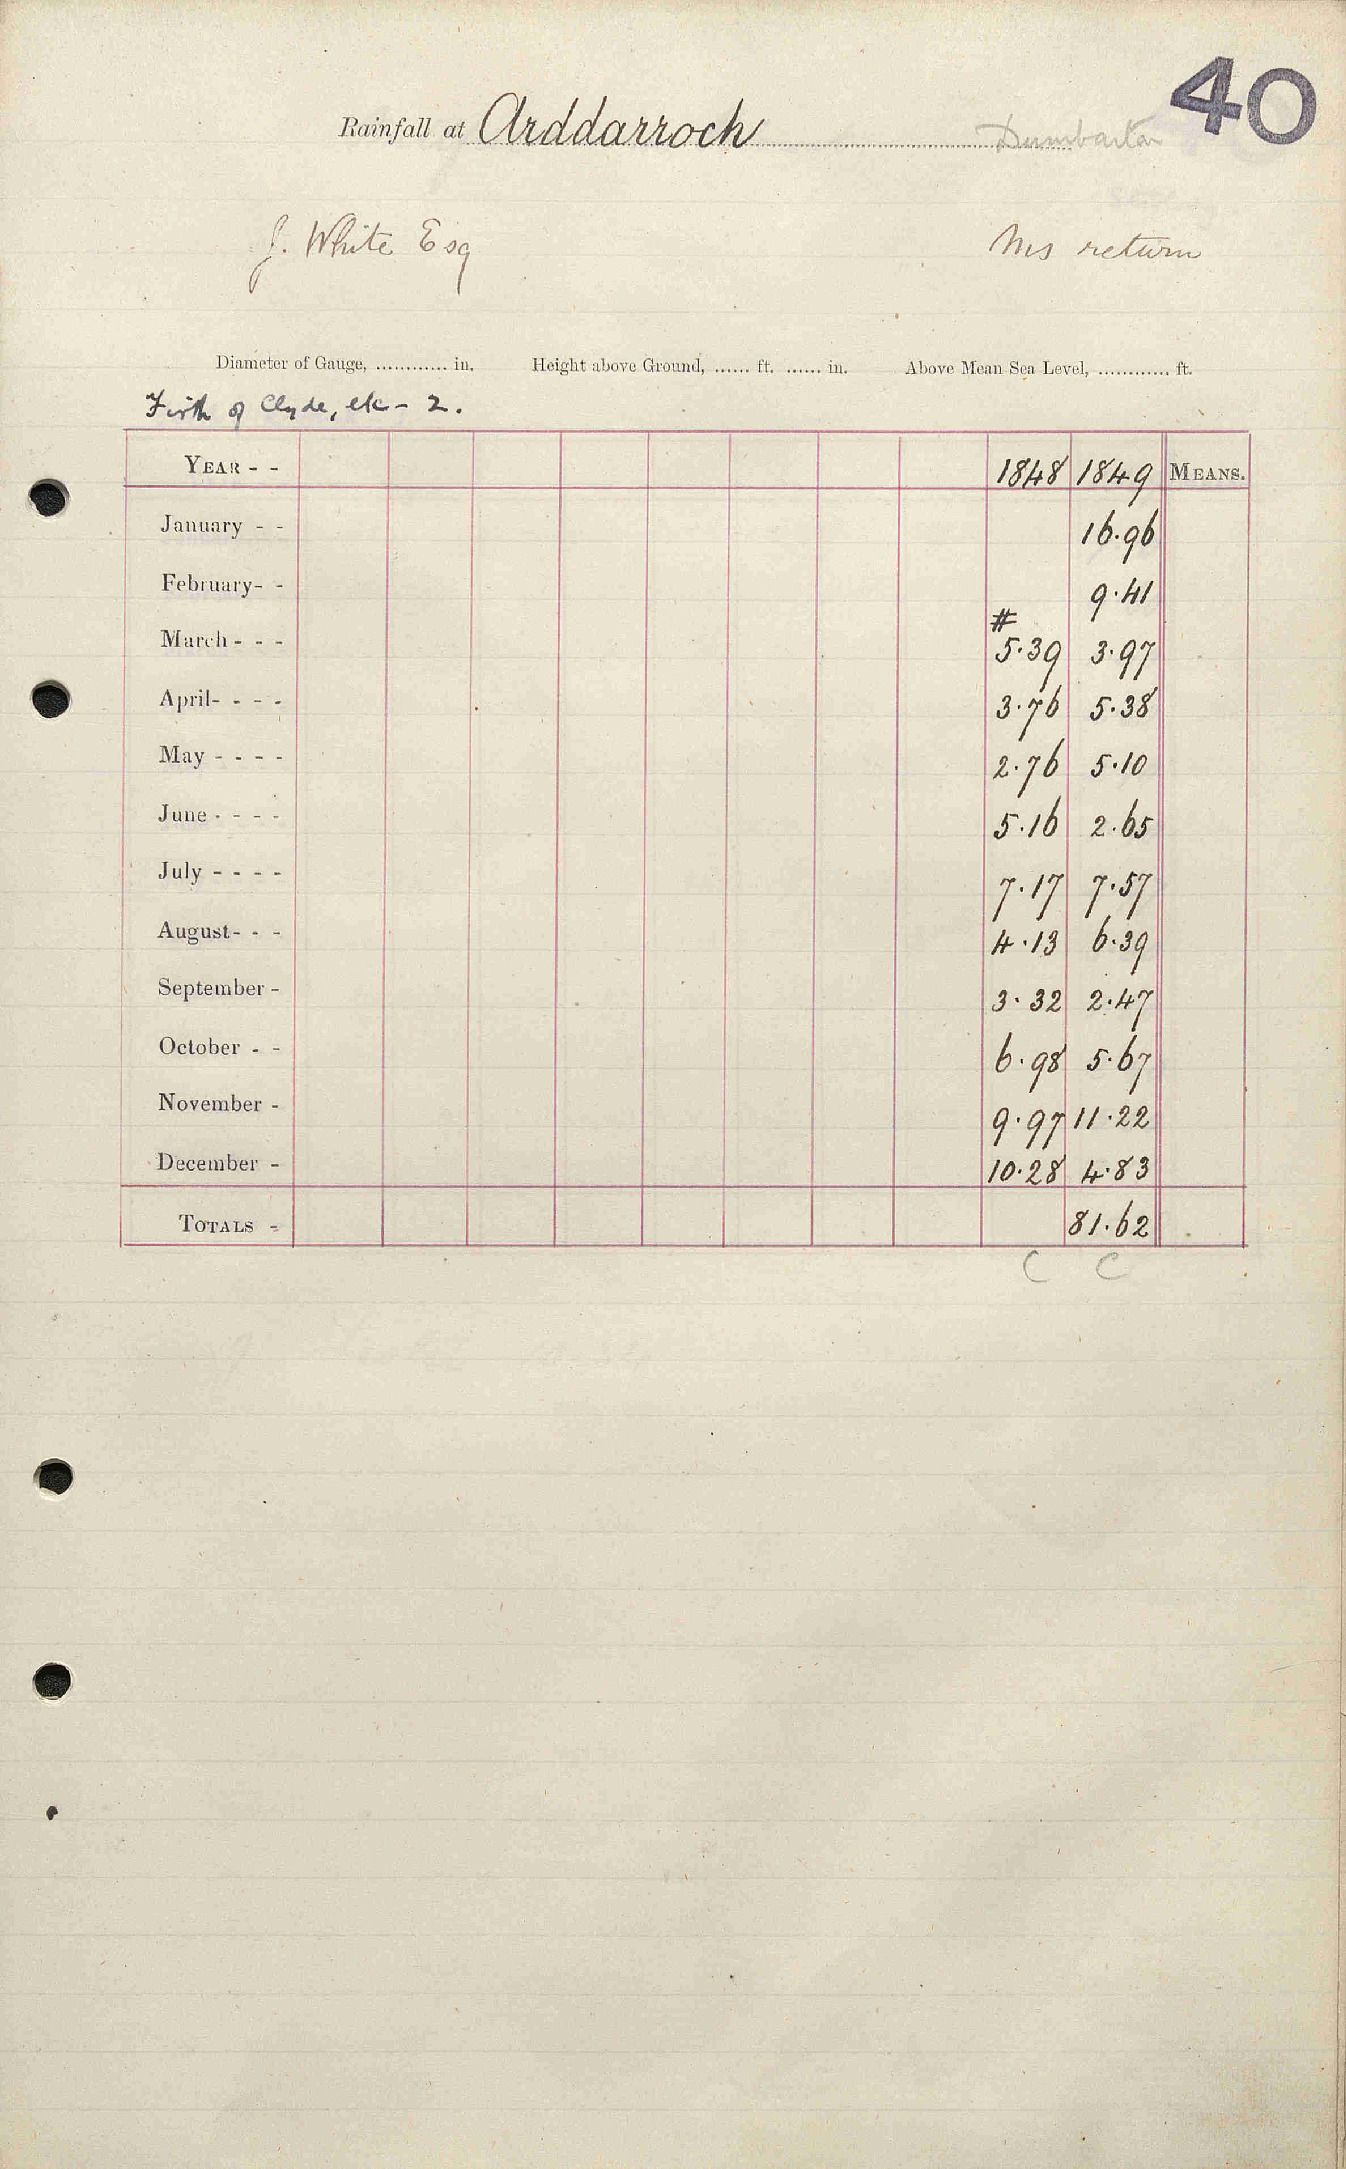 40
Rainfall at Arddarroch Dumbarton
J. White Esq Ms return
Diameter of Gauge, ............ in. Height above Ground, ...... ft. ...... in. Above Mean Sea Level, ............ ft.
Firth of Clyde, etc - 2.
YEAR - - 1848 1849 MEANS.
January - - 16.96
February- - 9.41
#
March - - - 5.39 3.97
April- - - - 3.76 5.38
May - - - - 2.76 5.10
June - - - - 5.16 2.65
July - - - - 7.17 7.57
August- - - 4.13 6.39
September - 3.32 2.47
October - - 6.98 5.67
November - 9.97 11.22
December - 10.28 4.83
TOTALS - 81.62
C C